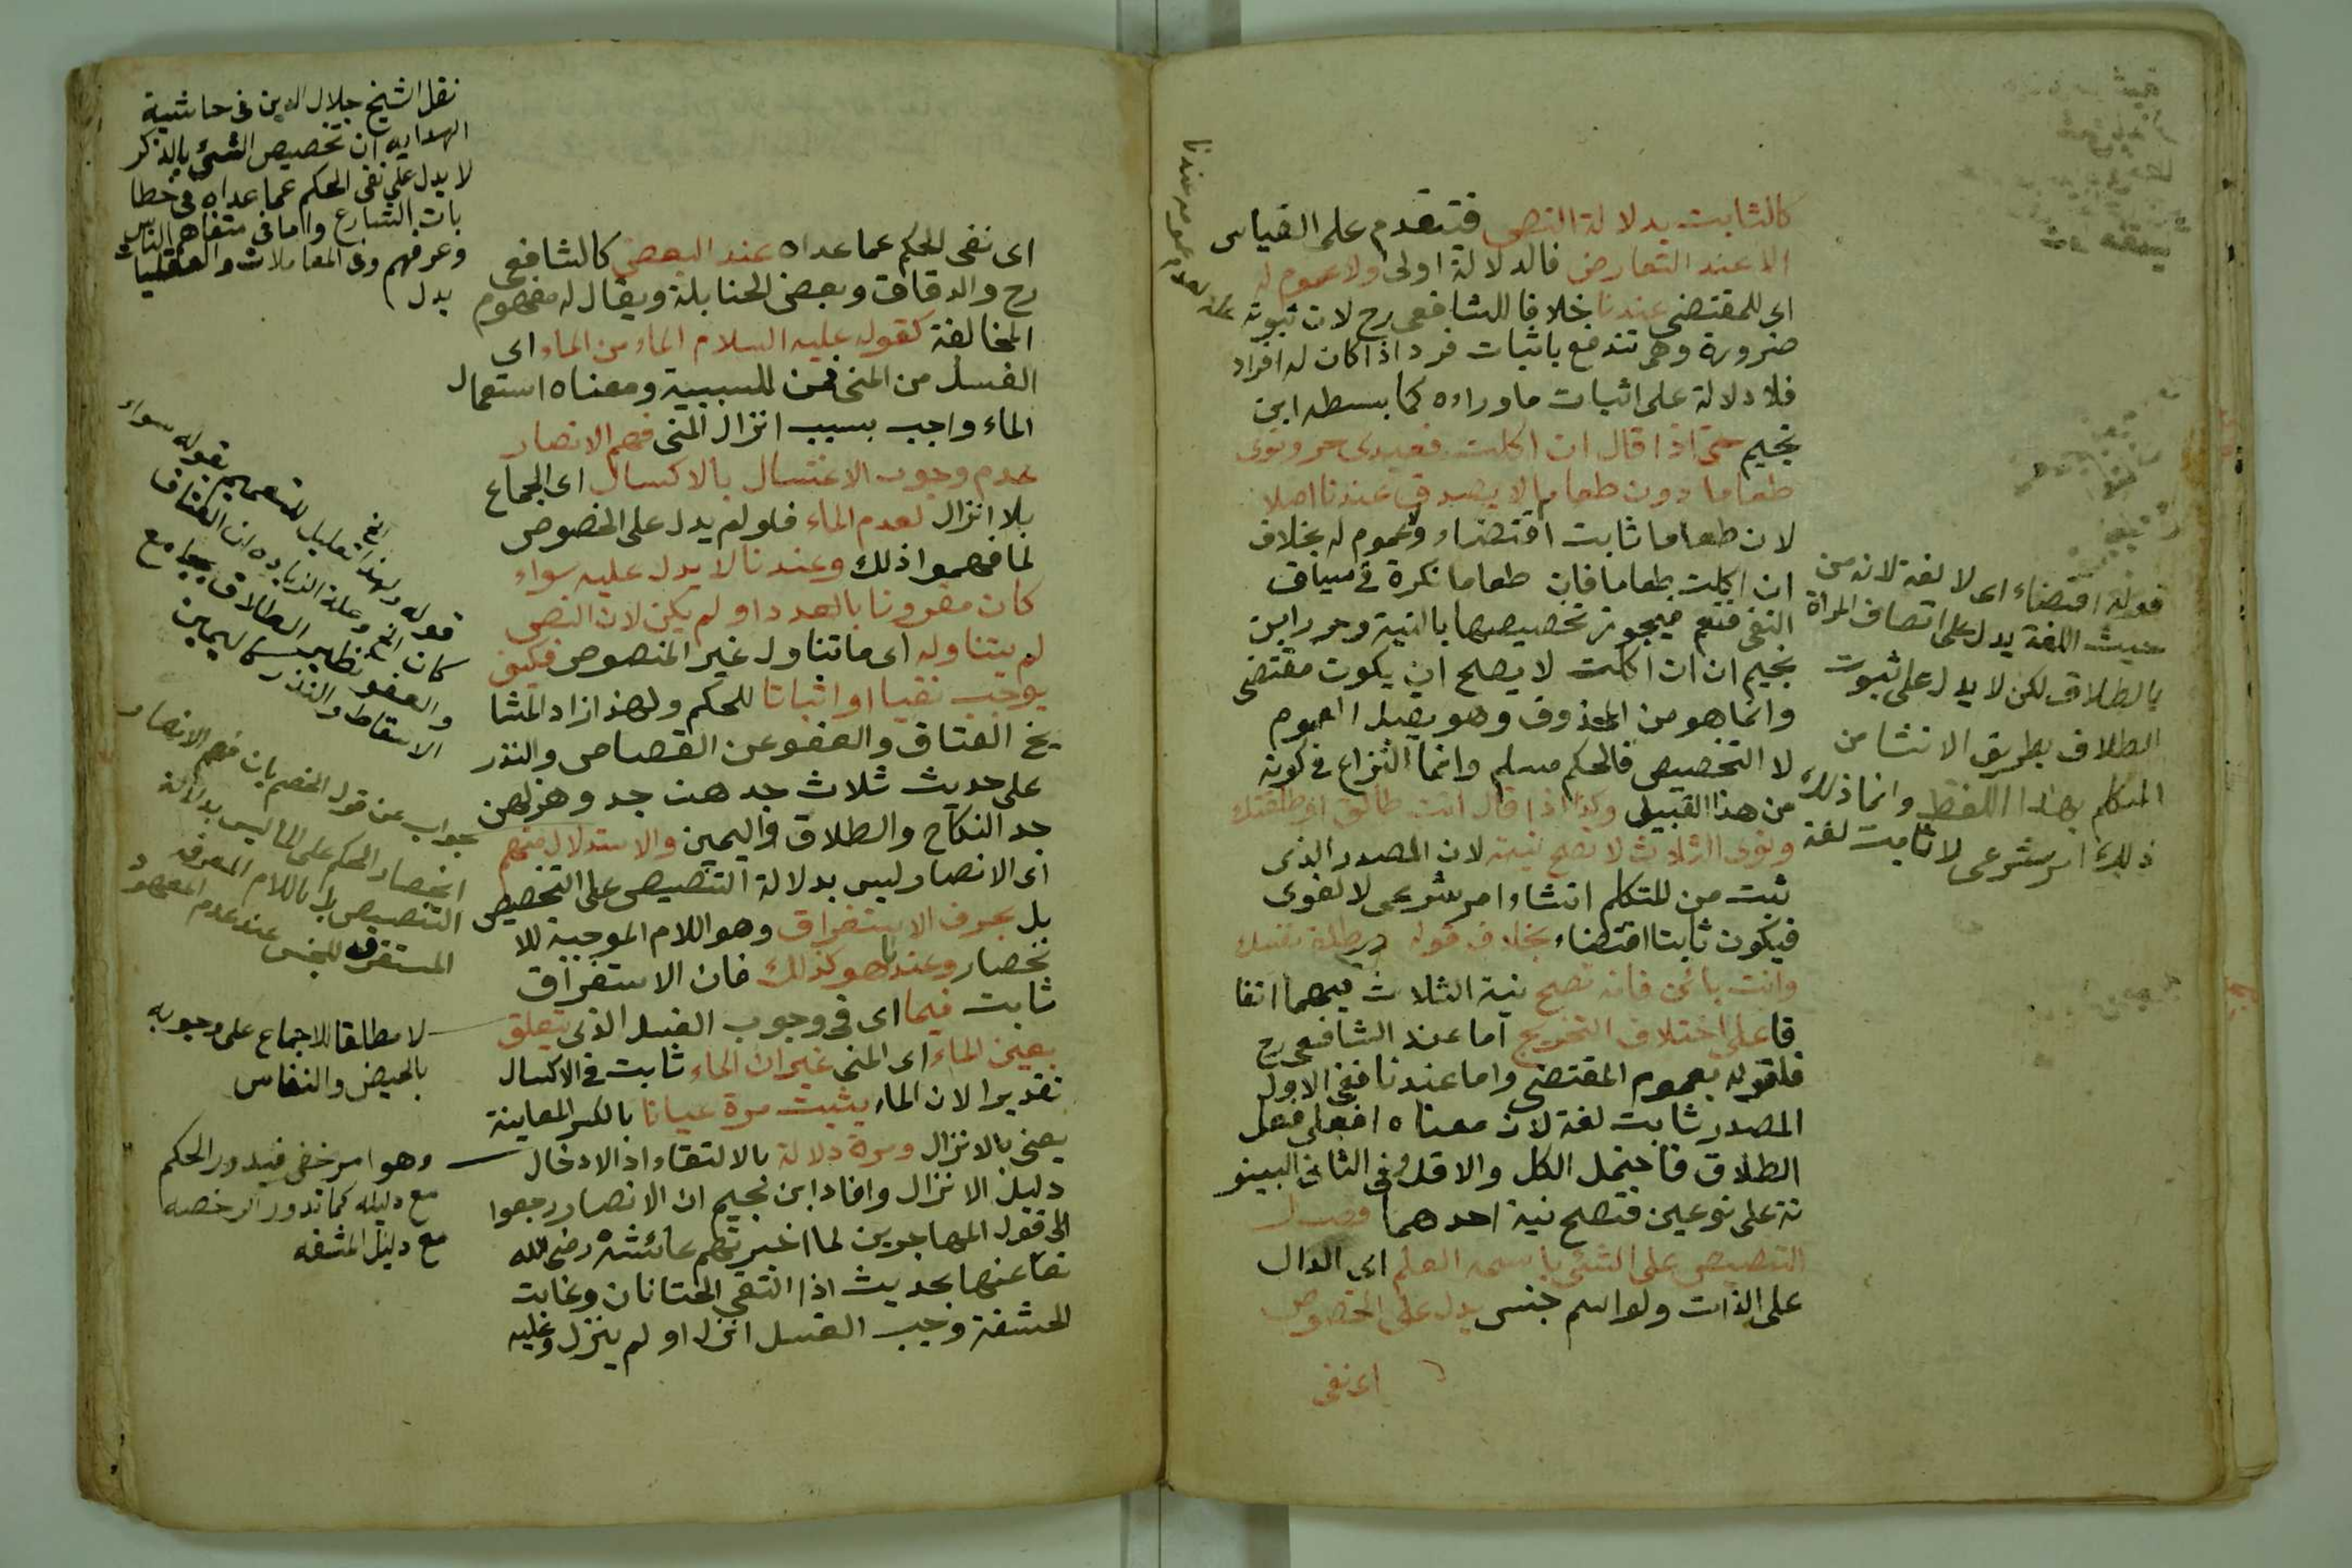 كالثابت بدلالة النص فتتقدم على القياس
الا عند التعارض فالدلالة اولى ولا عموم له
اى للمقتضى عندنا خلافا للشافعى رح لان ثبوته
ضرورة وهى تندفع باثبات فرد اذا كان له افراد
فلا دلالة على اثبات ما وراءه كما بسطه ابن
نجيم حتى اذا قال ان اكلت فعبدى حر ونوى
طعاما دون طعام لا يصدق عندنا اصلا
لان طعاما ثابت اقتضاء ولا عموم له بخلاف
ان اكلت طعاما فان طعاما نكرة فى سياق
النفى فتعم فيجوز تخصيصها بالنية وحرر ابن
نجيم ان ان اكلت لا يصلح ان يكون مقتضى
وانما هو من المحذوف وهو يقبل العموم
لا التخصيص فالحكم مسلم وانما النزاع فى كونه
من هذا القبيل وكذا اذا قال انت طالق او طلقتك
ونوى الثلاث لا تصح نيته لان المصدر الذى
ثبت من المتكلم انشاء امر شرعى لا لغوى
فيكون ثابتا اقتضاء بخلاف قوله طلقى نفسك
وانت بائن فانه تصح نية الثلاث فيهما اتفا
قا على اختلاف التخريج اما عند الشافعى رح
فلقوله بعموم المقتضى واما عندنا ففى الاول
المصدر ثابت لغة لان معناه افعلى فعل
الطلاق فاحتمل الكل والاقل وفى الثانى البينو
نة على نوعين فتصح نية احدهما فصل
التنصيص على الشئ باسمه العلم اى الدال
على الذات ولو اسم جنس يدل على الخصوص
اى نفى
قوله اقتضاء اى لا لغة لانه من
حيث اللغة يدل على اتصاف المراة
بالطلاق لكن لا يدل على ثبوت
الطلاق بطريق الانشا من
المتكلم بهذا اللفظ وانما ذلك
ذلك امر شرعى لا ثابت لغة
اى نفى الحكم عما عداه عند البعض كالشافعى
رح والدقاق وبعض الحنابلة ويقال له مفهوم
المخالفة كقوله عليه السلام الماء من الماء اى
الغسل من المنى فمن للسببية ومعناه استعمال
الماء واجب بسبب انزال المنى فهم الانصار
عدم وجوب الاغتسال بالاكسال اى الجماع
بلا انزال لعدم الماء فلو لم يدل على الخصوص
لما فهموا ذلك وعندنا لا يدل عليه سواء
كان مقرونا بالعدد او لم يكن لان النص
لم يتناوله اى ما تناول غير المنصوص فكيف
يوجب نفيا او اثباتا للحكم ولهذا زاد المشا
يخ العتاق والعفو عن القصاص والنذر
على حديث ثلاث جدهن جد وهزلهن
جد النكاح والطلاق واليمين والاستدلال منهم
اى الانصار ليس بدلالة التنصيص على التخصيص
بل بحرف الاستغراق وهو اللام الموجبة للا
نحصار وعندنا هو كذلك فان الاستغراق
ثابت فيما اى فى وجوب الغسل الذى يتعلق
بعين الماء اى المنى غير ان الماء ثابت فى الاكسال
تقديرا لان الماء يثبت مرة عيانا بالكسر المعاينة
يعنى بالانزال ومرة دلالة بالالتقاء اذ الادخال
دليل الانزال وافاد ابن نجيم ان الانصار رجعوا
الى قول المهاجرين لما اخبرتهم عائشة رضى الله
تعا عنها بحديث اذا التقى الختانان وغابت
الحشفة وجب الغسل انزل او لم ينزل وعليه
نقل الشيخ جلال الدين فى حاشية
الهدايه ان تخصيص الشئ بالذكر
لا يدل على نفى الحكم عما عداه فى خطا
بات الشارع واما فى متفاهم الناس
وعرفهم وفى المعاملات والعقليات
يدل
قوله ولهذا تعليل للتعميم بقوله سواء
كان الخ وعلة الزياده ان العتاق
والعفو نظير الطلاق بجامع
الاسقاط والنذر كاليمين
جواب عن قول الخصم بان فهم الانصار
انحصار الحكم على الماء ليس بدلالة
التنصيص بل باللام المعرفه
المستغرقه للجنس عند عدم المعهود
لا مطلقا للاجماع على وجوبه
بالحيض والنفاس
وهو امر خفى فيدور الحكم
مع دليله كما تدور الرخصه
مع دليل المشقه